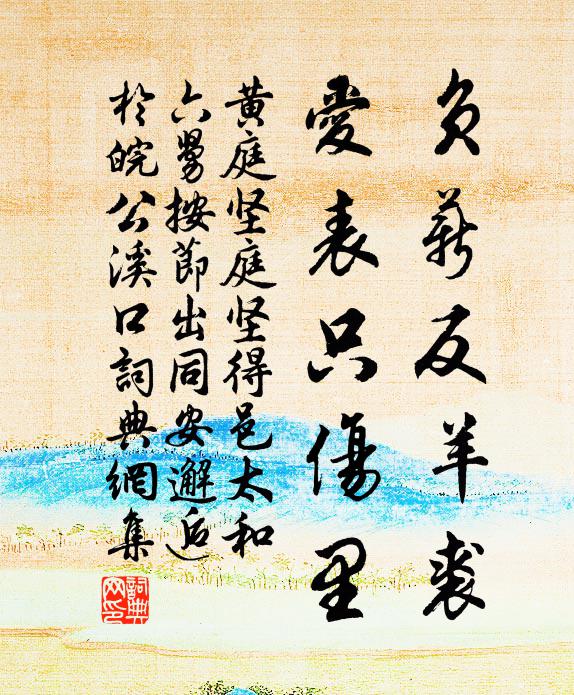 负薪反羊裘
愛表只傷里
黄庭坚庭坚得邑太和
六舅按節出同安邂逅
於皖公溪口詞典網集
詞典
网印